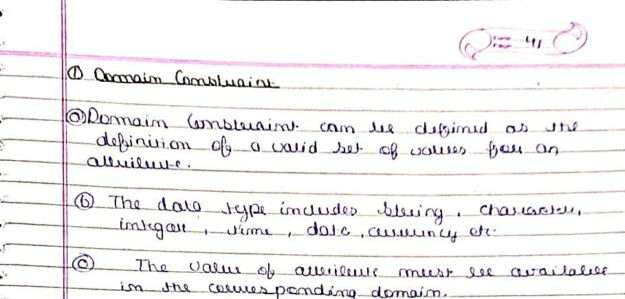 41
① Domain Constraint
ⓐ Domain Constraint can be defined as the
definition of a valid set of values for an
attribute.
ⓑ The data type includes string, character,
integar, time, date, currency etc.
ⓒ The value of attribute must be available
in the corresponding domain.